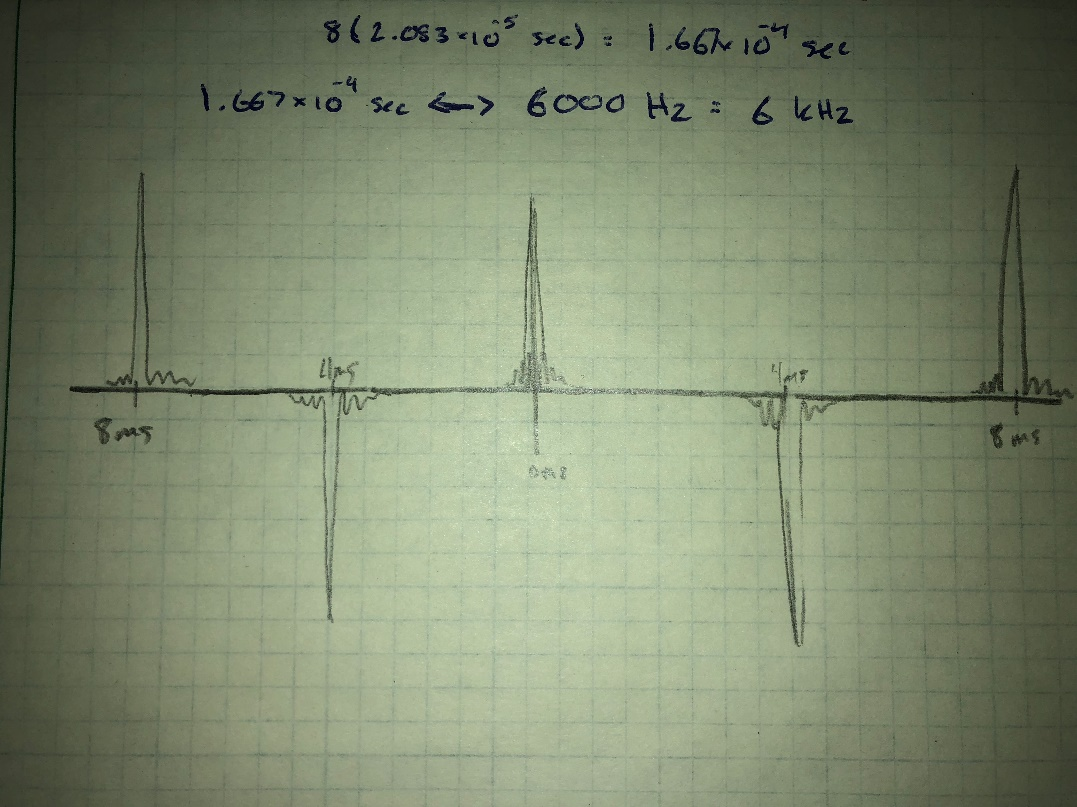 8(2.083×10⁻⁵ sec) = 1.667×10⁻⁴ sec
1.667×10⁻⁴ sec ⟷ 6000 Hz = 6 kHz
4ms 4ms
8ms 8ms
0ms